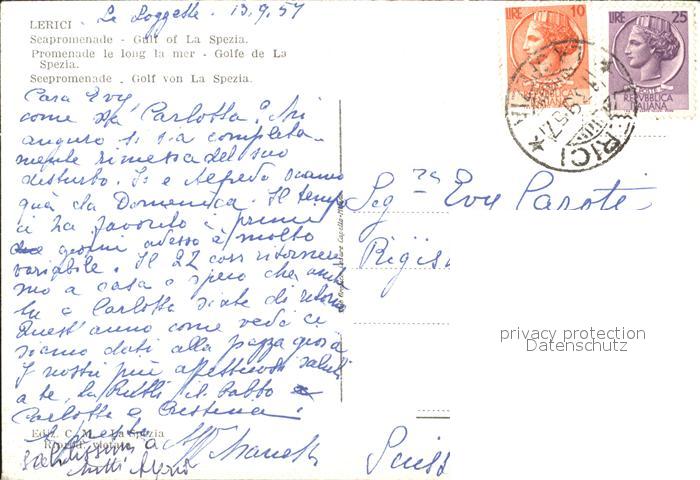 Le Loggette 13.9.57
LERICI -
Seapromenade - Gulf of La Spezia.
Promenade le long la mer - Golfe de La
Spezia.
Seepromenade - Golf von La Spezia.
LIRE 10
LIRE 25
POSTE
REPUBBLICA
ITALIANA
REPUBBLICA
ITALIANA
LERICI
Cara Evy
come sta Carlotta? Mi
auguro si sia completa-
mente rimessa del suo
disturbo. Io e Alfredo siamo
quà da Domenica. Il tempo
ci ha favorito i primi
giorni adesso è molto
variabile. Il 22 corr ritornere
mo a casa e spero che anch
tu e Carlotta siate di ritorno
Quest'anno come vedi ci
siamo dati alla pazza gioia
I nostri più affettuosi saluti
a te, la Rutli il babbo
Carlotta e Cristina.
Ediz. C. M. - La Spezia
tutti
Seg ra Evy Paroti
Svizz
privacy protection
Datenschutz